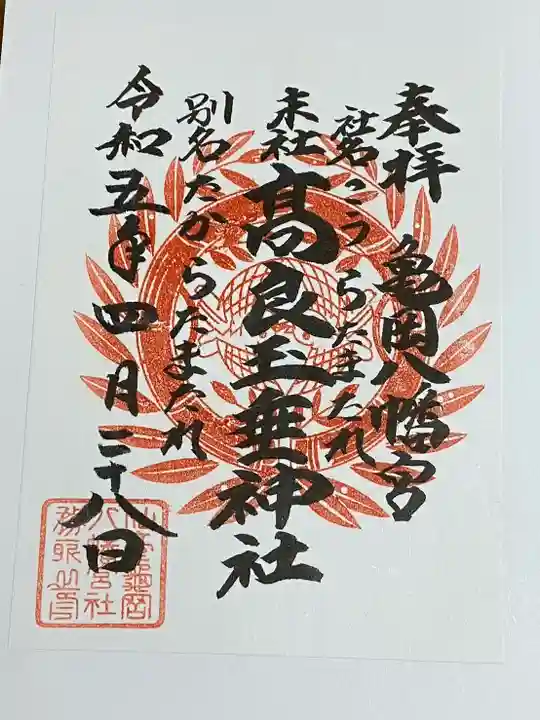 奉拝 亀岡八幡宮
社名こうらたまたれ
末社 高良玉垂神社
別名たからたまたれ
令和五年四月二十八日
仙臺龜岡
八幡宮社
務所之印